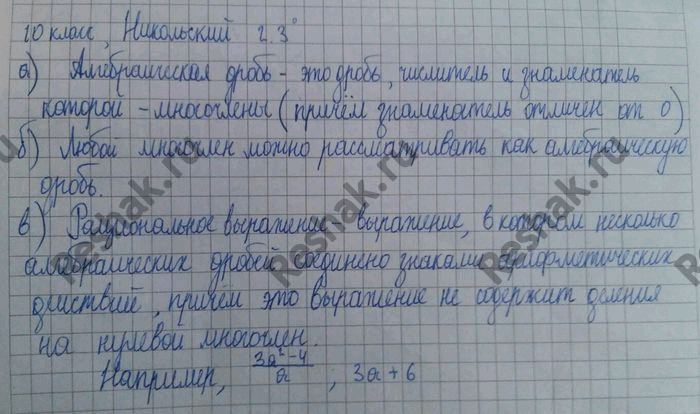 10 класс, Никольский 2.3°
а) Алгебраическая дробь - это дробь, числитель и знаменатель
которой - многочлены (причём знаменатель отличен от 0)
б) Любой многочлен можно рассматривать как алгебраическую
дробь.
в) Рациональное выражение - выражение, в котором несколько
алгебраических дробей соединено знаками арифметических
действий, причём это выражение не содержит деления
на нулевой многочлен.
Например, (3a²-4)/a ; 3a+6
Reshak.ru
Reshak.ru
Reshak.ru
Reshak.ru
Reshak.ru
Reshak.ru